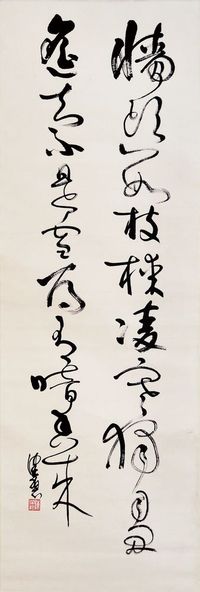 牆角數枝楳凌寒獨自開
遙知不是雪為有暗香來